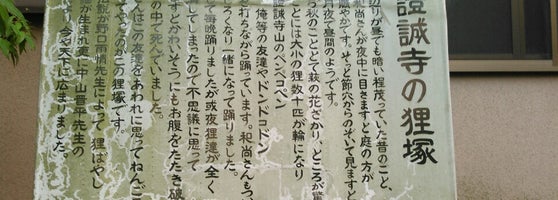 證誠寺の狸塚
辺りが昼でも暗い程茂っていた昔のこと、
和尚さんが夜中に目さますと庭の方が
賑やかです。そっと節穴からのぞいて見ますと
月夜で昼間のようです。
ろ秋のこととて萩の花ざかり、ところが驚
ことには大小の狸数十匹が輪になり
證誠寺山のペンペコペン
俺等の友達やドンドコドン
打ちながら踊っています。和尚さんもつ
しろくなり一緒になって踊りました。
て毎晩踊りましたが或夜狸達が全く
てしまったので不思議に思って
すとかわいそうにもお腹をたたき破
の中で死んでいました。
んはこの友達をあわれに思ってねんご
やったのがこの狸塚です。
説が野口雨情先生によって狸ばやし
が生まれ更に中山晋平先生の
り、今や天下に広まりました。